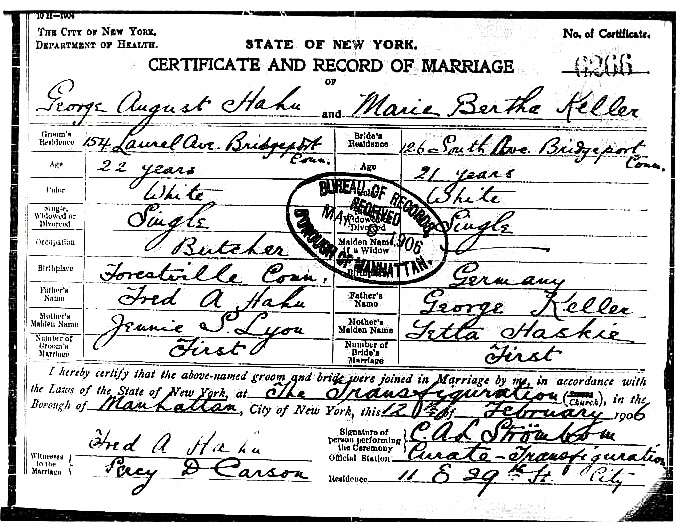 10 H-1904
THE CITY OF NEW YORK.
DEPARTMENT OF HEALTH.
No. of Certificate.
6266
STATE OF NEW YORK.
CERTIFICATE AND RECORD OF MARRIAGE
OF
George August Hahn and Marie Bertha Keller
Groom's Residence 154 Laurel Ave. Bridgeport Conn. Bride's Residence 126 South Ave. Bridgeport Conn.
Age 22 years Age 21 years
Color White White
Single, Widowed or Divorced Single Widowed Divorced Single
Occupation Butcher Maiden Name if a Widow
Birthplace Forestville Conn. Birthplace Germany
Father's Name Fred A Hahn Father's Name George Keller
Mother's Maiden Name Jennie S. Lyon Mother's Maiden Name Letta Haskie
Number of Groom's Marriage First Number of Bride's Marriage First
BUREAU OF RECORDS
RECEIVED
MAR 1906
BOROUGH OF MANHATTAN.
I hereby certify that the above-named groom and bride were joined in Marriage by me, in accordance with
the Laws of the State of New York, at The Transfiguration (Church), in the
Borough of Manhattan, City of New York, this 12th of February 1906
Witnesses to the Marriage Fred A Hahn
Percy D Carson
Signature of person performing the Ceremony C.A.L. Strömbom
Official Station Curate-Transfiguration
Residence 11 E 29th St. City